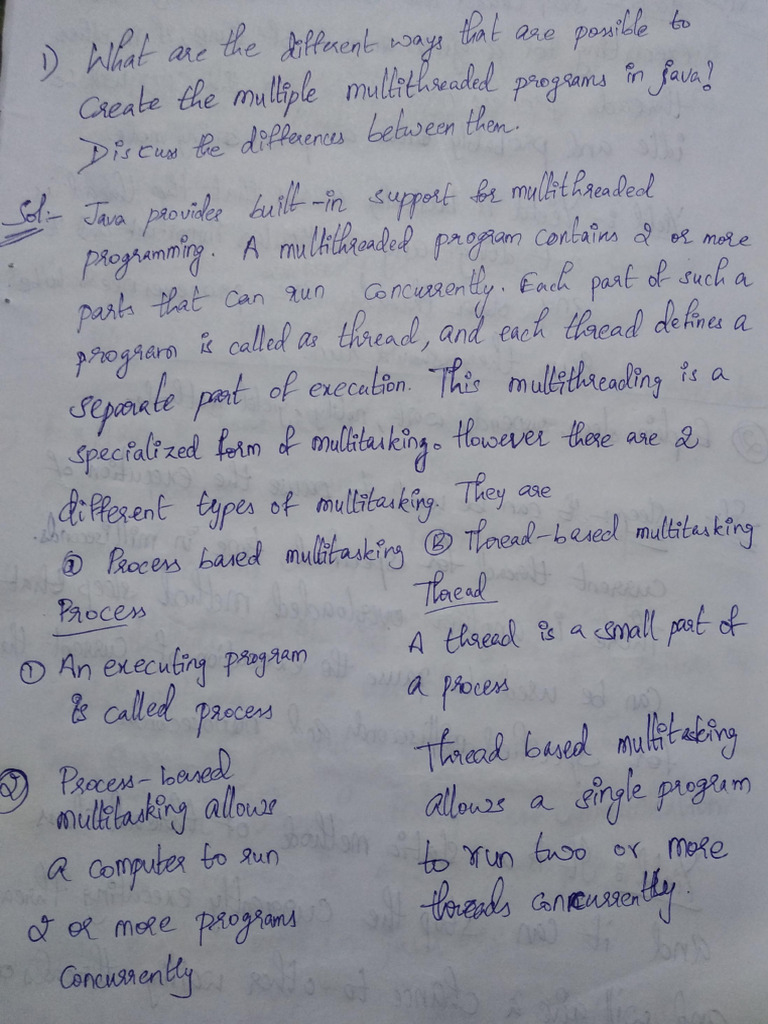 1) What are the different ways that are possible to
create the multiple multithreaded programs in java?
Discuss the differences between them.
Sol:- Java provides built-in support for multithreaded
programming. A multithreaded program contains 2 or more
parts that can run concurrently. Each part of such a
program is called as thread, and each thread defines a
separate part of execution. This multithreading is a
specialized form of multitasking. However there are 2
different types of multitasking. They are
ⓐ Process based multitasking Ⓑ Thread-based multitasking
Process
① An executing program
is called process
② Process-based
multitasking allows
a computer to run
2 or more programs
concurrently
Thread
A thread is a small part of
a process
Thread based multitasking
allows a single program
to run two or more
threads concurrently.